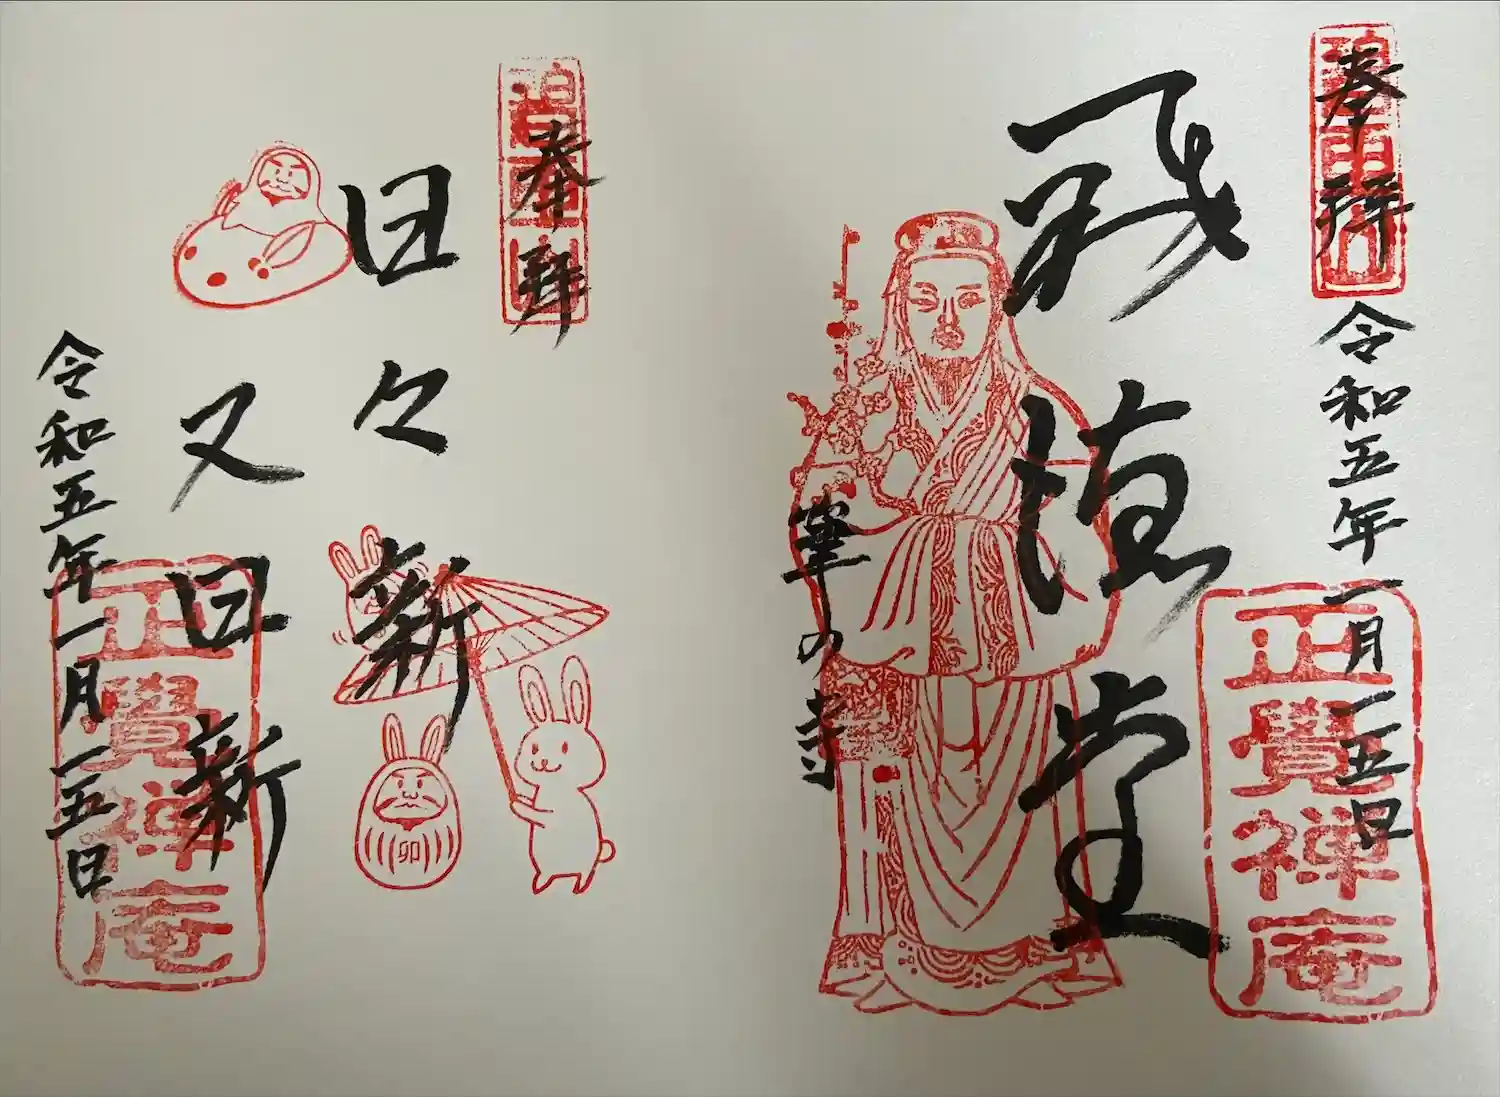 奉拝
令和五年一月一五日
正覺禅庵
堂
筆の寺
奉拝
日々新
又日新
卯
令和五年一月一五日
正覺禅庵